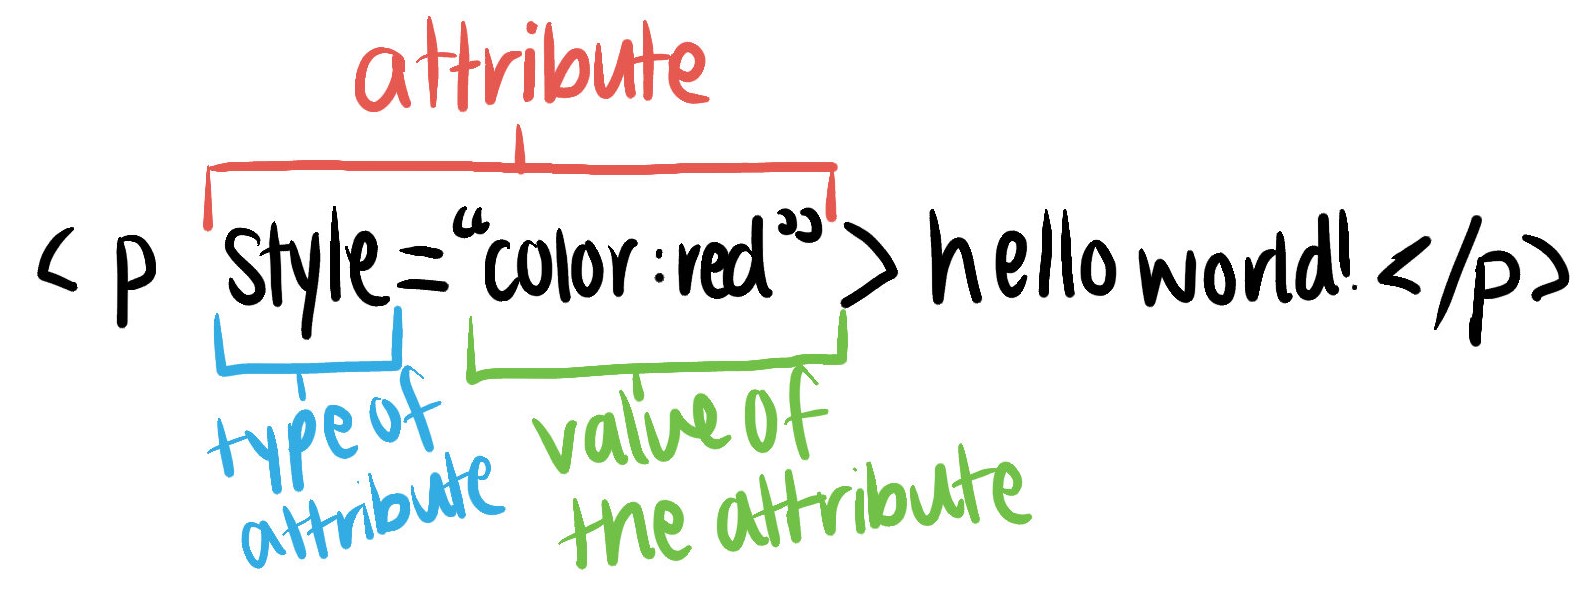 attribute
<p style=“color:red”>hello world!</p>
type of
attribute
value of
the attribute